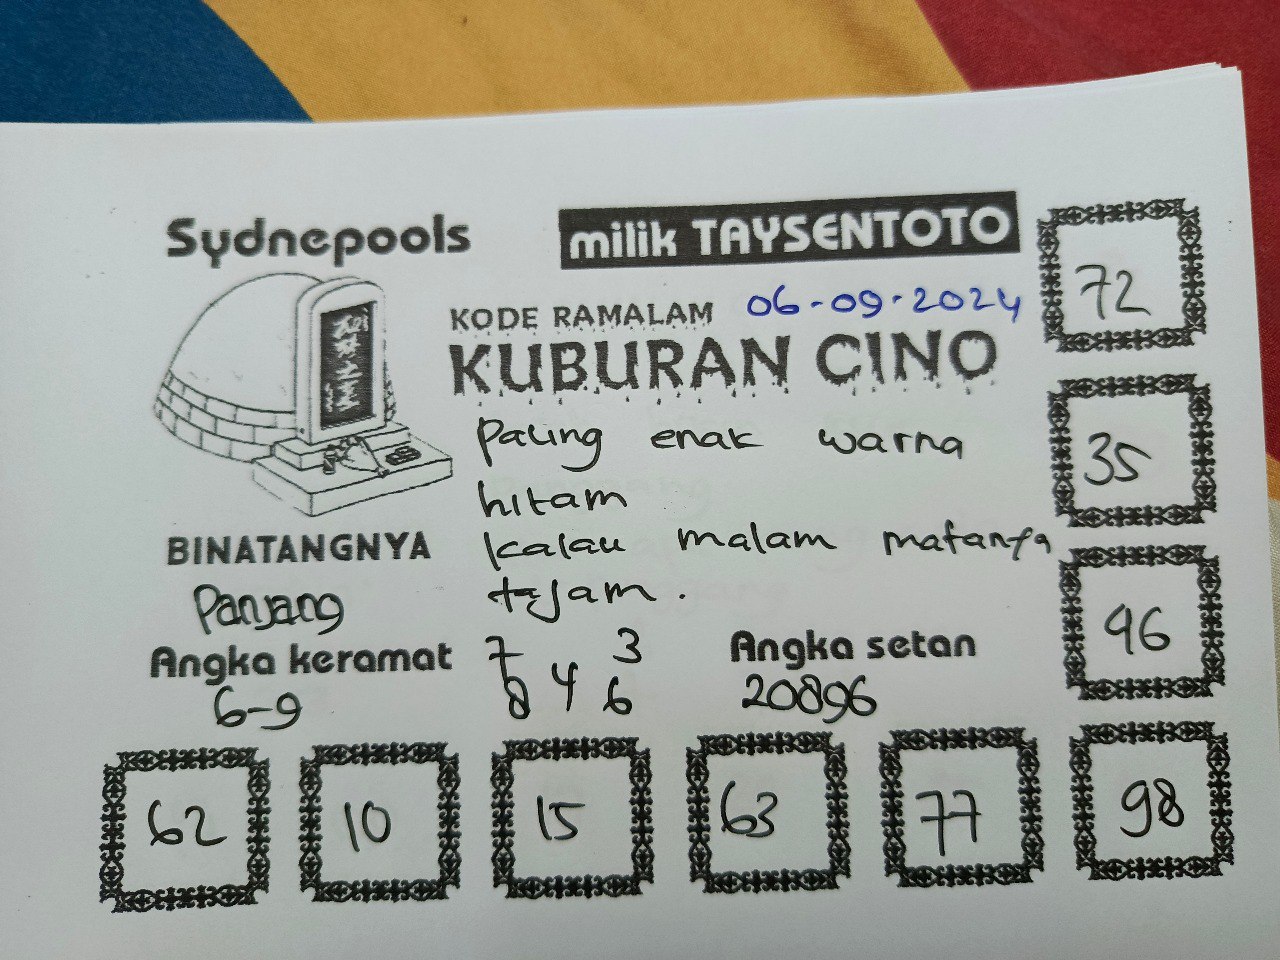 Sydnepools
milik TAYSENTOTO
KODE RAMALAM 06-09-2024
KUBURAN CINO
Paling enak warna
hitam
kalau malam matanya
tajam.
BINATANGNYA
Panjang
Angka keramat
6-9
7 3
8 4 6
Angka setan
20896
72
35
96
62 10 15 63 77 98